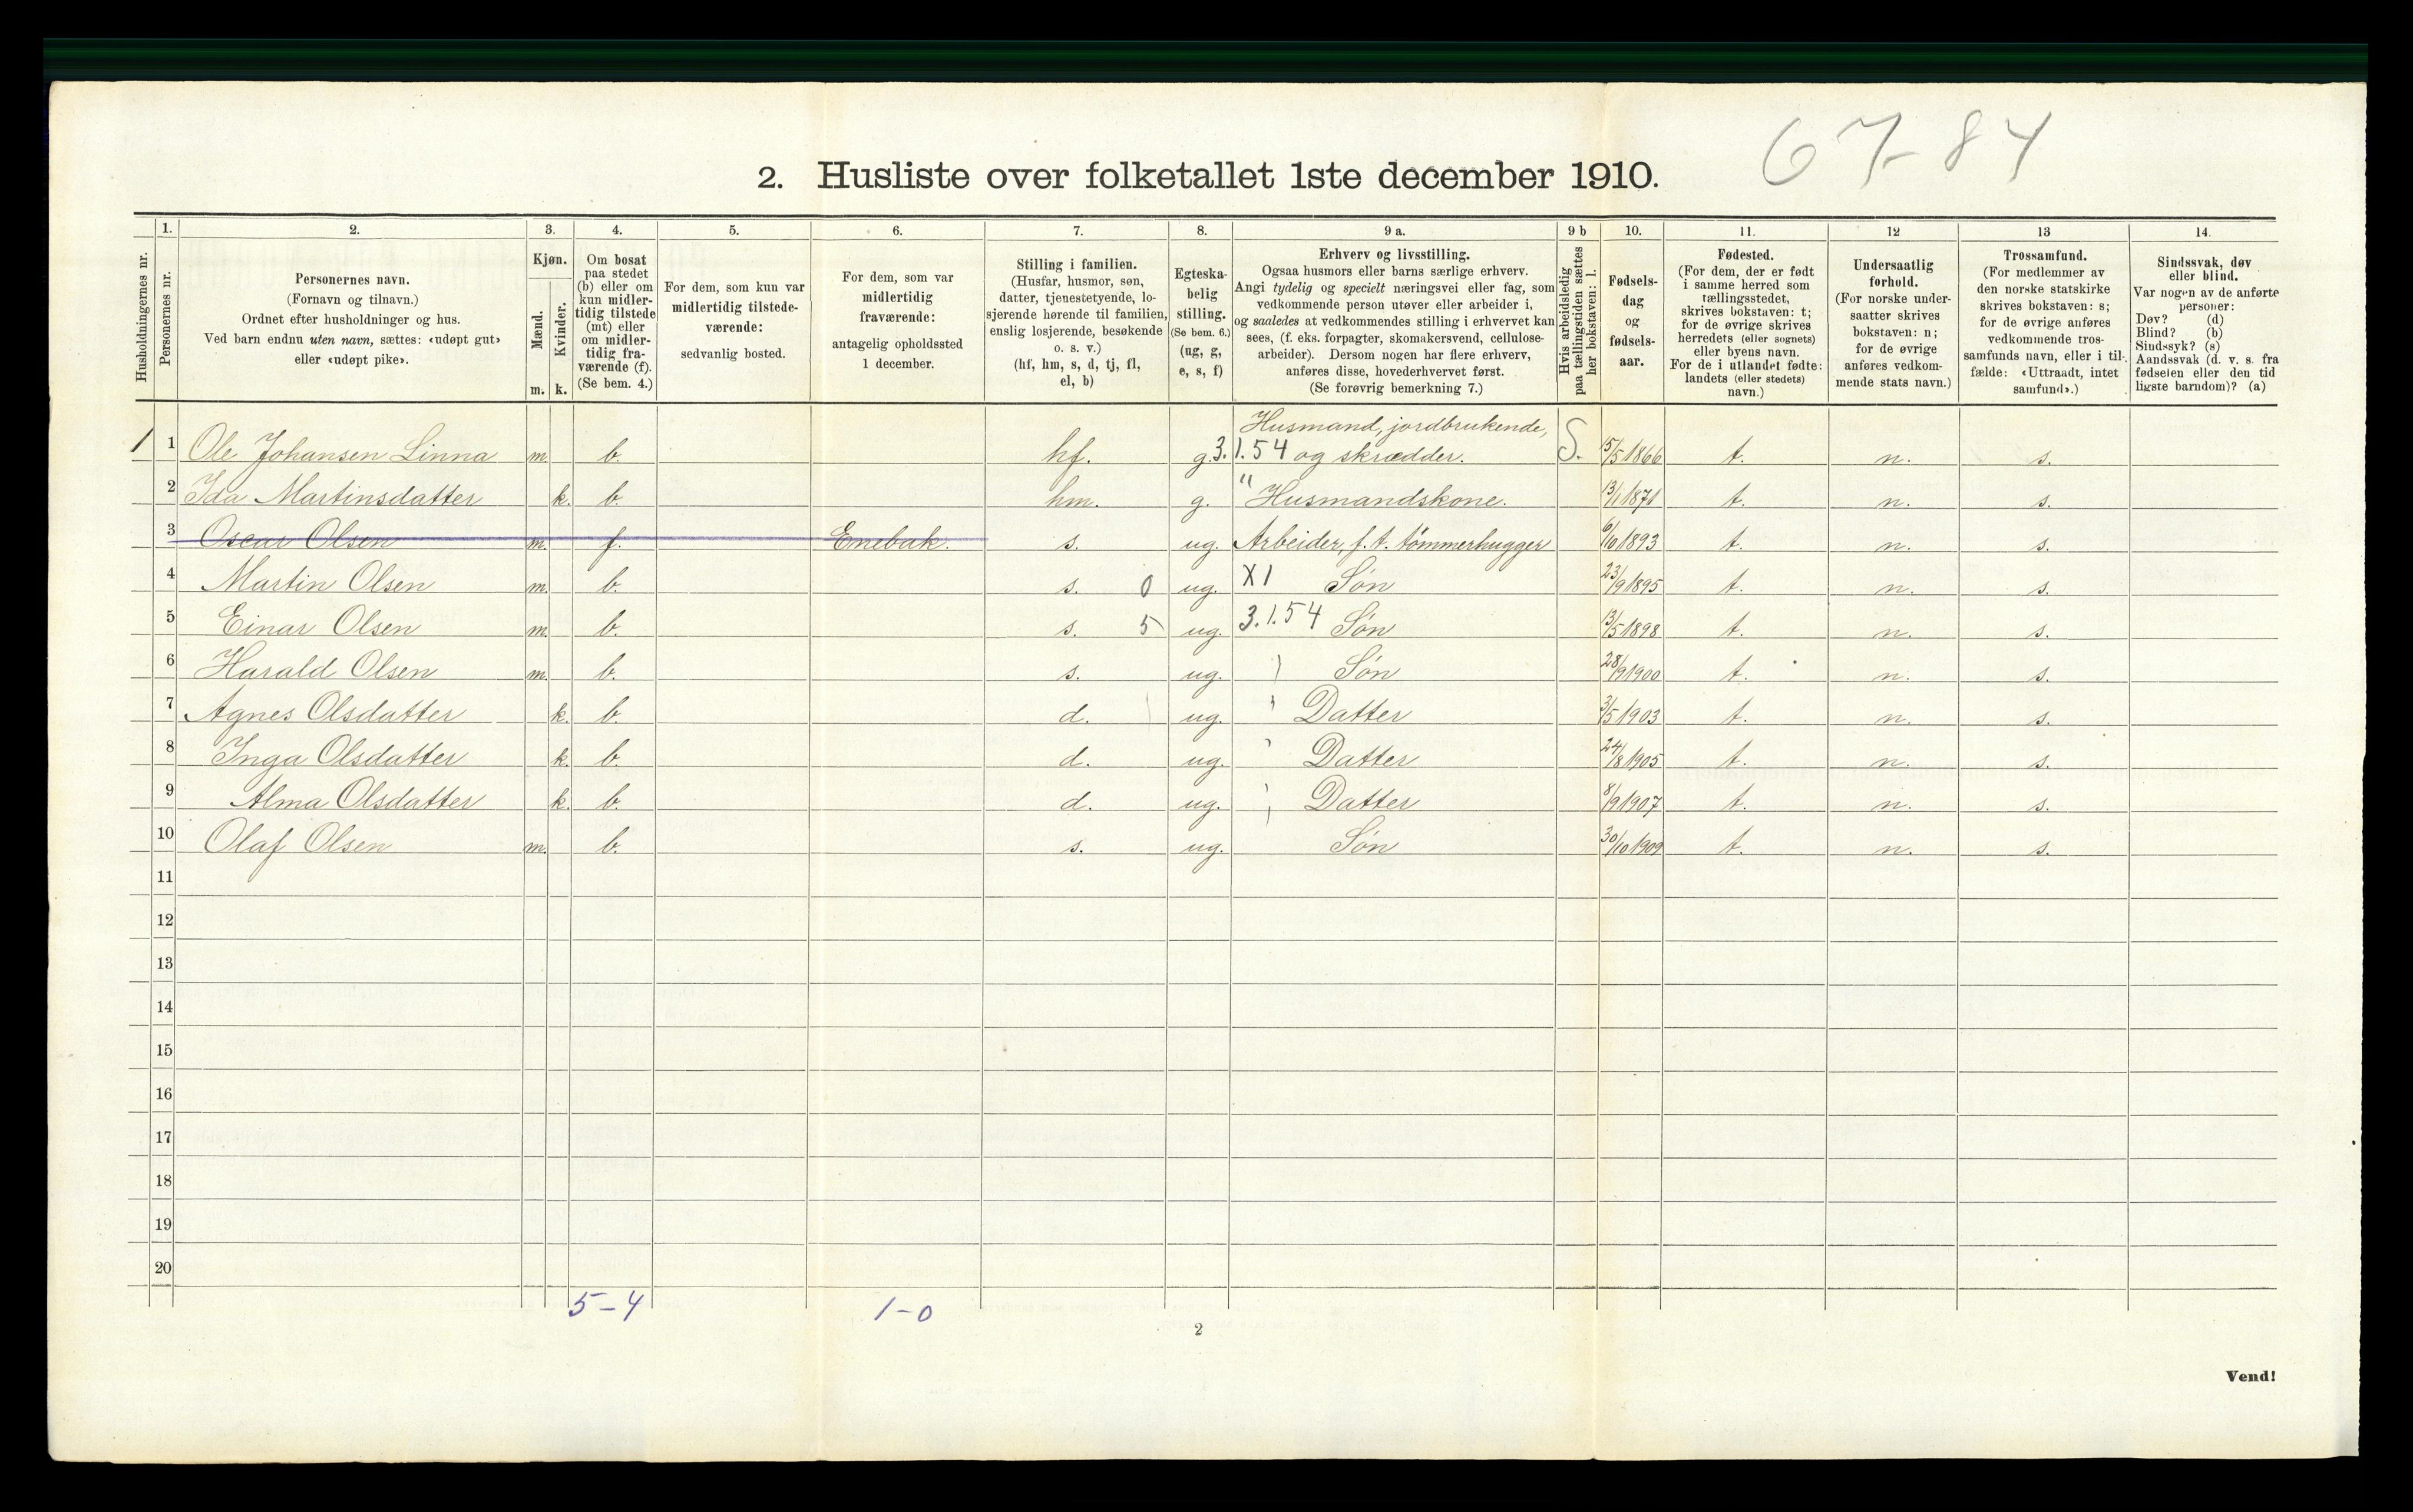 67-84
2. Husliste over folketallet 1ste december 1910.
Husholdningernes nr.
1.
Personernes nr.
2.
Personernes navn.
(Fornavn og tilnavn.)
Ordnet efter husholdninger og hus.
Ved barn endnu uten navn, sættes: «udøpt gut»
eller «udøpt pike».
3.
Kjøn.
Mænd.
m.
Kvinder.
k.
4.
Om bosat
paa stedet
(b) eller om
kun midler-
tidig tilstede
(mt) eller
om midler-
tidig fra-
værende (f).
(Se bem. 4.)
5.
For dem, som kun var
midlertidig tilstede-
værende:
sedvanlig bosted.
6.
For dem, som var
midlertidig
fraværende:
antagelig opholdssted
1 december.
7.
Stilling i familien.
(Husfar, husmor, søn,
datter, tjenestetyende, lo-
sjerende hørende til familien,
enslig losjerende, besøkende
o. s. v.)
(hf, hm, s, d, tj, fl,
el, b)
8.
Egteska-
belig
stilling.
(Se bem. 6.)
(ug, g,
e, s, f)
9 a.
Erhverv og livsstilling.
Ogsaa husmors eller barns særlige erhverv.
Angi tydelig og specielt næringsvei eller fag, som
vedkommende person utøver eller arbeider i,
og saaledes at vedkommendes stilling i erhvervet kan
sees, (f. eks. forpagter, skomakersvend, cellulose-
arbeider). Dersom nogen har flere erhverv,
anføres disse, hovederhvervet først.
(Se forøvrig bemerkning 7.)
9 b
Hvis arbeidsledig
paa tællingstiden sættes
her bokstaven: l.
10.
Fødsels-
dag
og
fødsels-
aar.
11.
Fødested.
(For dem, der er født
i samme herred som
tællingsstedet,
skrives bokstaven: t;
for de øvrige skrives
herredets (eller sognets)
eller byens navn.
For de i utlandet fødte:
landets (eller stedets)
navn.)
12
Undersaatlig
forhold.
(For norske under-
saatter skrives
bokstaven: n;
for de øvrige
anføres vedkom-
mende stats navn.)
13
Trossamfund.
(For medlemmer av
den norske statskirke
skrives bokstaven: s;
for de øvrige anføres
vedkommende tros-
samfunds navn, eller i til-
fælde: «Uttraadt, intet
samfund».)
14.
Sindssvak, døv
eller blind.
Var nogen av de anførte
personer:
Døv? (d)
Blind? (b)
Sindssyk? (s)
Aandssvak (d. v. s. fra
fødselen eller den tid
ligste barndom)? (a)
Husmand, jordbrukende,
1 1 Ole Johansen Linna m. b. hf. g. 3.1.54 og skrædder. S. 15/5 1866 t. n. s.
2 Ida Martinsdatter k. b. hm. g. " Husmandskone. 13/1 1871 t. n. s.
3 Oscar Olsen m. f. Enebak. s. ug. Arbeider, f.t. tømmerhugger 6/10 1893 t. n. s.
4 Martin Olsen m. b. s. 0 ug. X1 Søn 23/9 1895 t. n. s.
5 Einar Olsen m. b. s. 5 ug. 3.1.54 Søn 13/5 1898 t. n. s.
6 Harald Olsen m. b. s. ug. Søn 28/9 1900 t. n. s.
7 Agnes Olsdatter k. b. d. ug. Datter 3/5 1903 t. n. s.
8 Inga Olsdatter k. b. d. ug. Datter 24/8 1905 t. n. s.
9 Alma Olsdatter k. b. d. ug. Datter 8/9 1907 t. n. s.
10 Olaf Olsen m. b. s. ug. Søn 30/10 1909 t. n. s.
11
12
13
14
15
16
17
18
19
20
5-4 1-0
2
Vend!